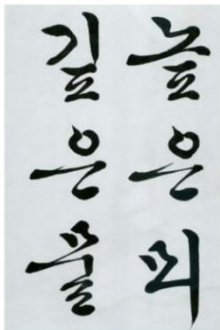 높은뫼
깊은물